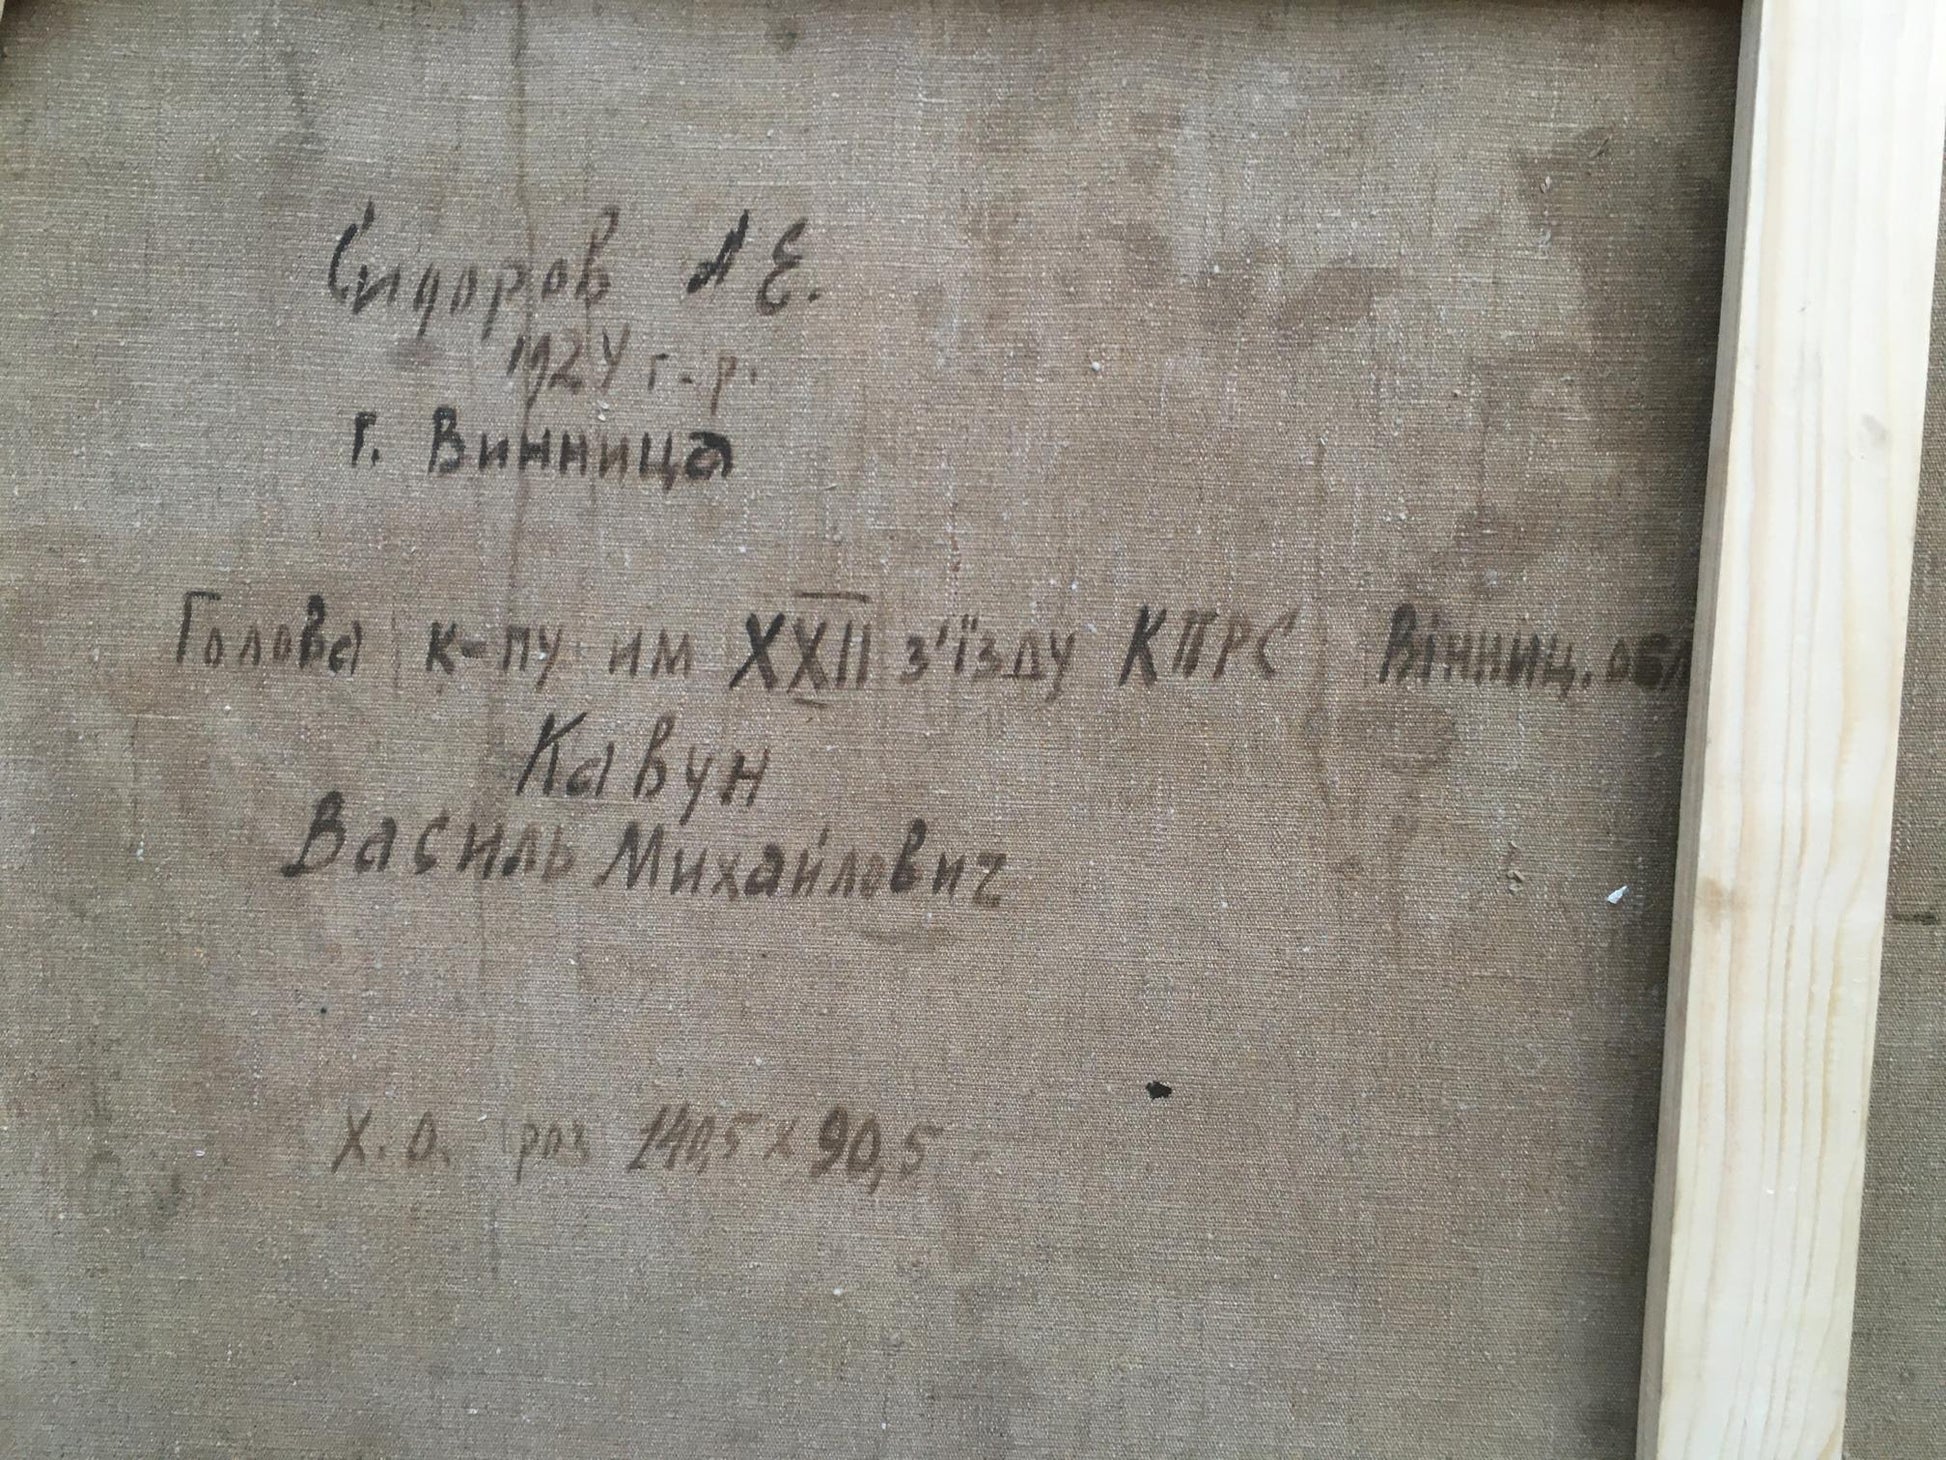 Сидоров А Е.
1924 г.р.
г. Винница
Голова к-пу им XXII з'їзду КПРС Вінниц. обл
Кавун
Василь Михайлович
Х.О. раз 140,5 х 90,5